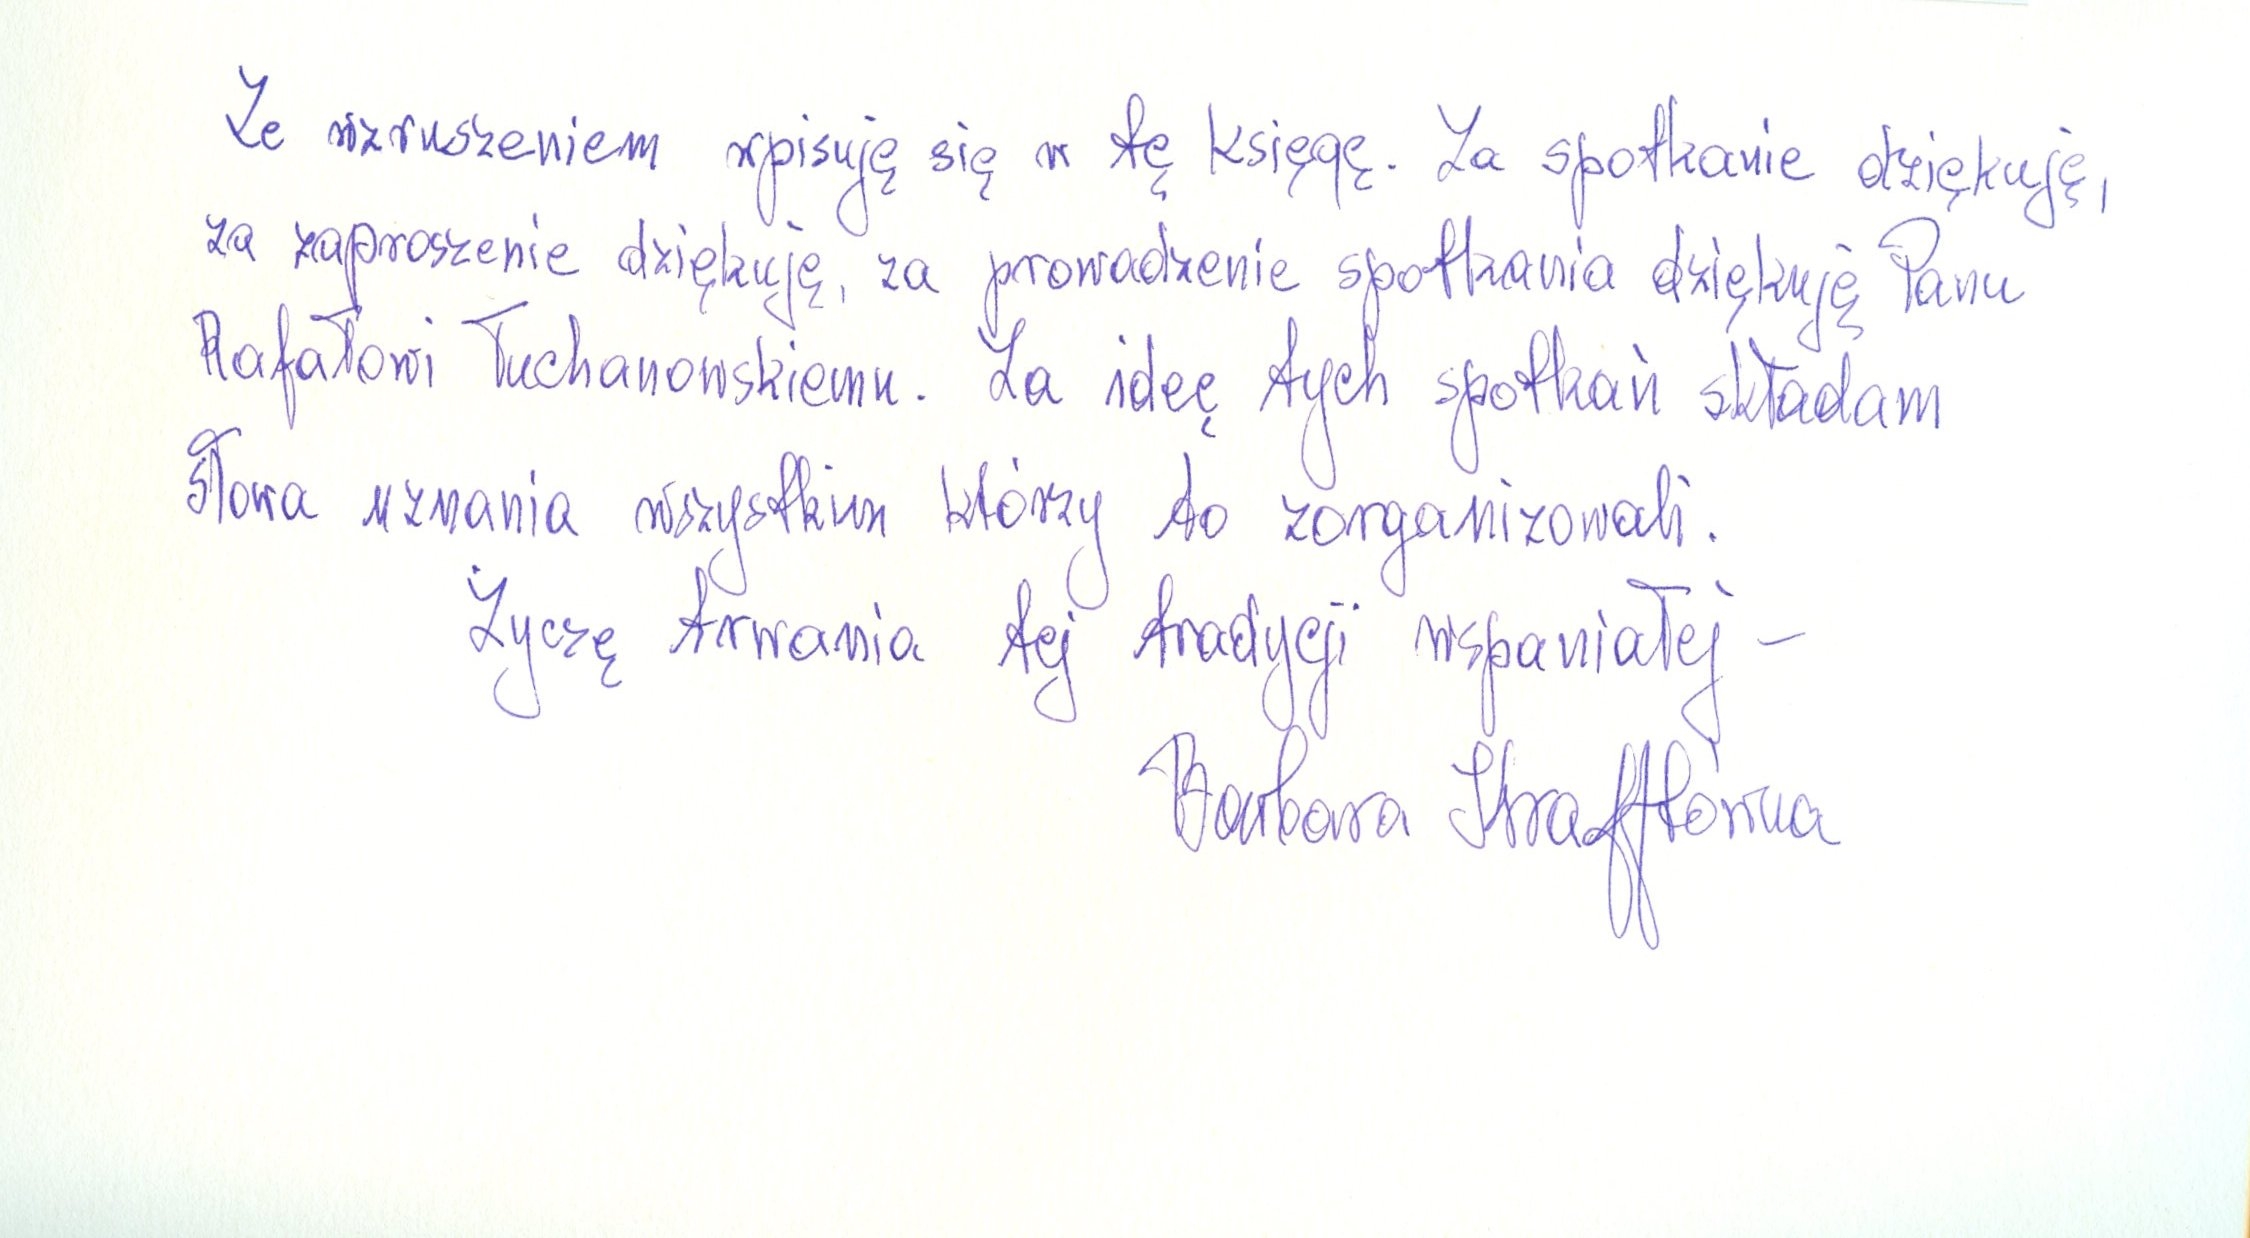 Ze wzruszeniem wpisuję się w tę księgę. Za spotkanie dziękuję,
za zaproszenie dziękuję, za prowadzenie spotkania dziękuję Panu
Rafałowi Tuchanowskiemu. Za ideę tych spotkań składam
słowa uznania wszystkim którzy to zorganizowali.
Życzę trwania tej tradycji wspaniałej –
Barbara Krafftówna